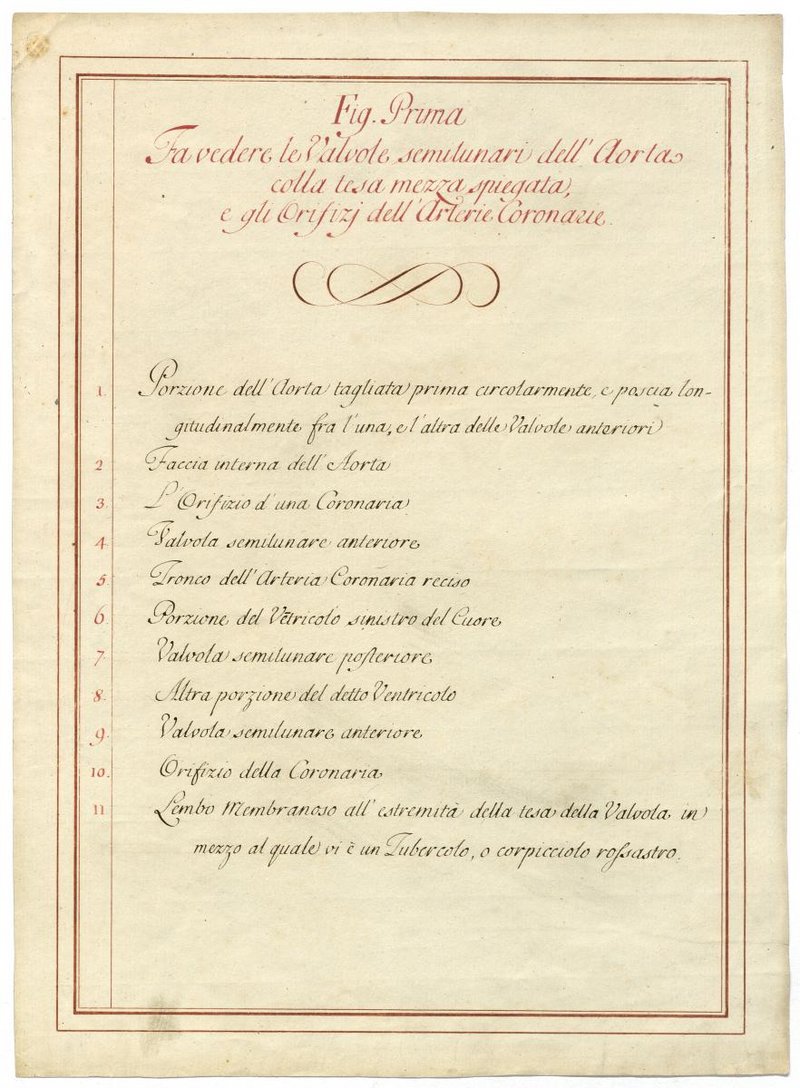 Fig. Prima
Fa vedere le Valvole semilunari dell' Aorta
colla tesa mezza spiegata,
e gli Orifizj dell' Arterie Coronarie.
1. Porzione dell' Aorta tagliata prima circolarmente, e poscia lon-
gitudinalmente fra l' una, e l' altra delle Valvole anteriori
2 Faccia interna dell' Aorta
3. L' Orifizio d' una Coronaria
4. Valvola semilunare anteriore
5. Tronco dell' Arteria Coronaria reciso
6. Porzione del Vẽtricolo sinistro del Cuore
7. Valvola semilunare poſteriore
8. Altra porzione del detto Ventricolo
9. Valvola semilunare anteriore
10. Orifizio della Coronaria
11 Lembo Membranoso all' estremità della tesa della Valvola in
mezzo al quale vi è un Tubercolo, o corpicciolo roſsastro.